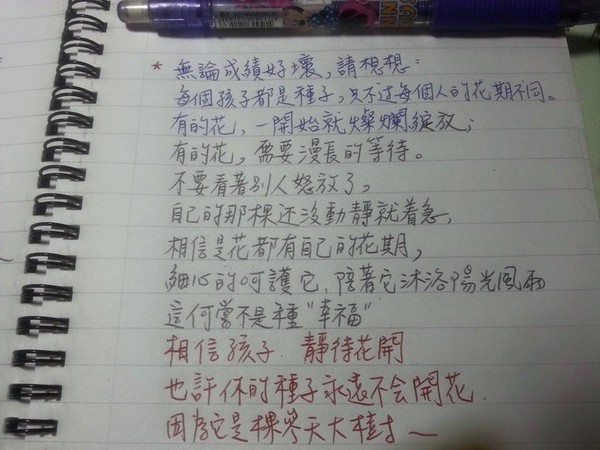 * 無論成績好壞，請想想：
每個孩子都是種子，只不过每個人的花期不同。
有的花，一開始就燦爛綻放；
有的花，需要漫長的等待。
不要看著別人怒放了，
自己的那棵还沒動靜就着急，
相信是花都有自己的花期，
細心的呵護它，陪著它沐浴陽光風雨
這何嘗不是種"幸福"
相信孩子．靜待花開
也許你的種子永遠不会開花．
因為它是棵岑天大樹～